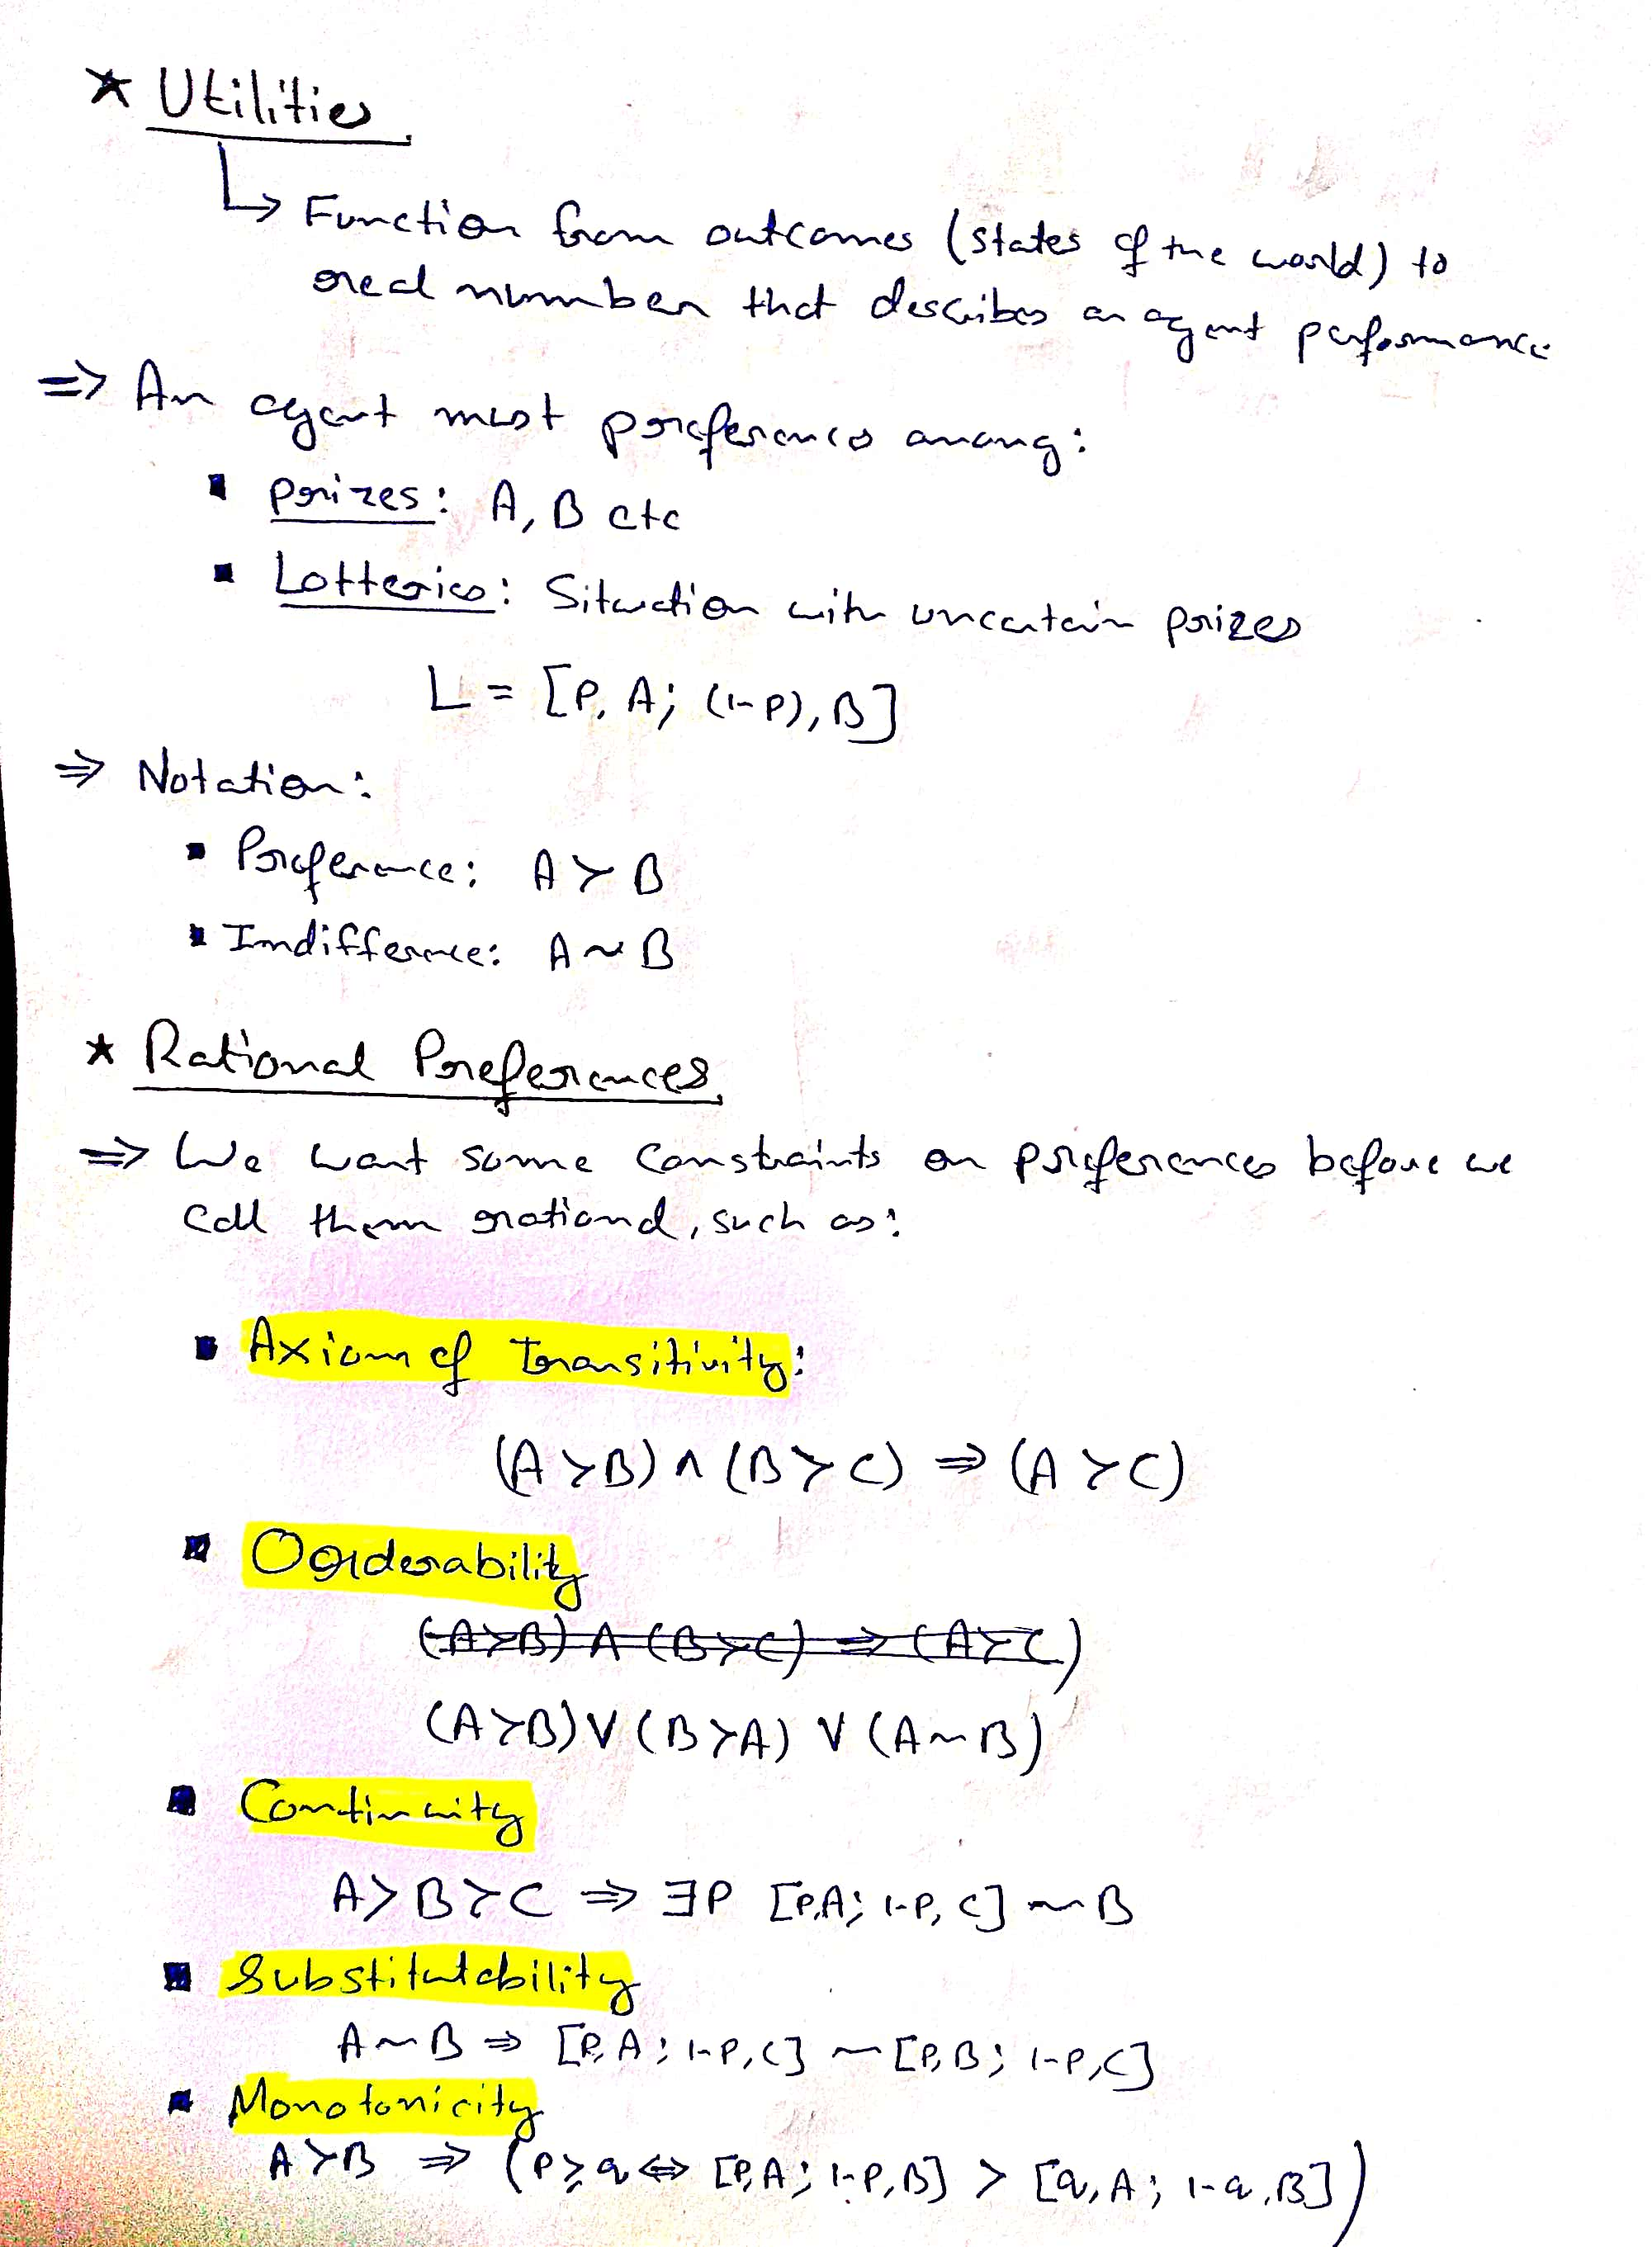 * Utilities
↳ Function from outcomes (states of the world) to
real number that describes an agent performance
⇒ An agent must preferences among:
▪ prizes: A, B etc
▪ Lotteries: Situation with uncertain prizes
L = [P, A; (1-P), B]
⇒ Notation:
▪ Preference: A ≻ B
▪ Indifference: A ~ B
* Rational Preferences
⇒ We want some constraints on preferences before we
call them rational, such as:
▪ Axiom of Transitivity:
(A ≻ B) ∧ (B ≻ C) ⇒ (A ≻ C)
▪ Orderability
(A ≻ B) ∧ (B ≻ C) ⇒ (A ≻ C)
(A ≻ B) ∨ (B ≻ A) ∨ (A ~ B)
▪ Continuity
A ≻ B ≻ C ⇒ ∃P [P,A; 1-P, C] ~ B
▪ Substitutability
A ~ B ⇒ [P, A; 1-P, C] ~ [P, B; 1-P, C]
▪ Monotonicity
A ≻ B ⇒ (P ≥ q ⇔ [P, A; 1-P, B] > [q, A; 1-q, B])